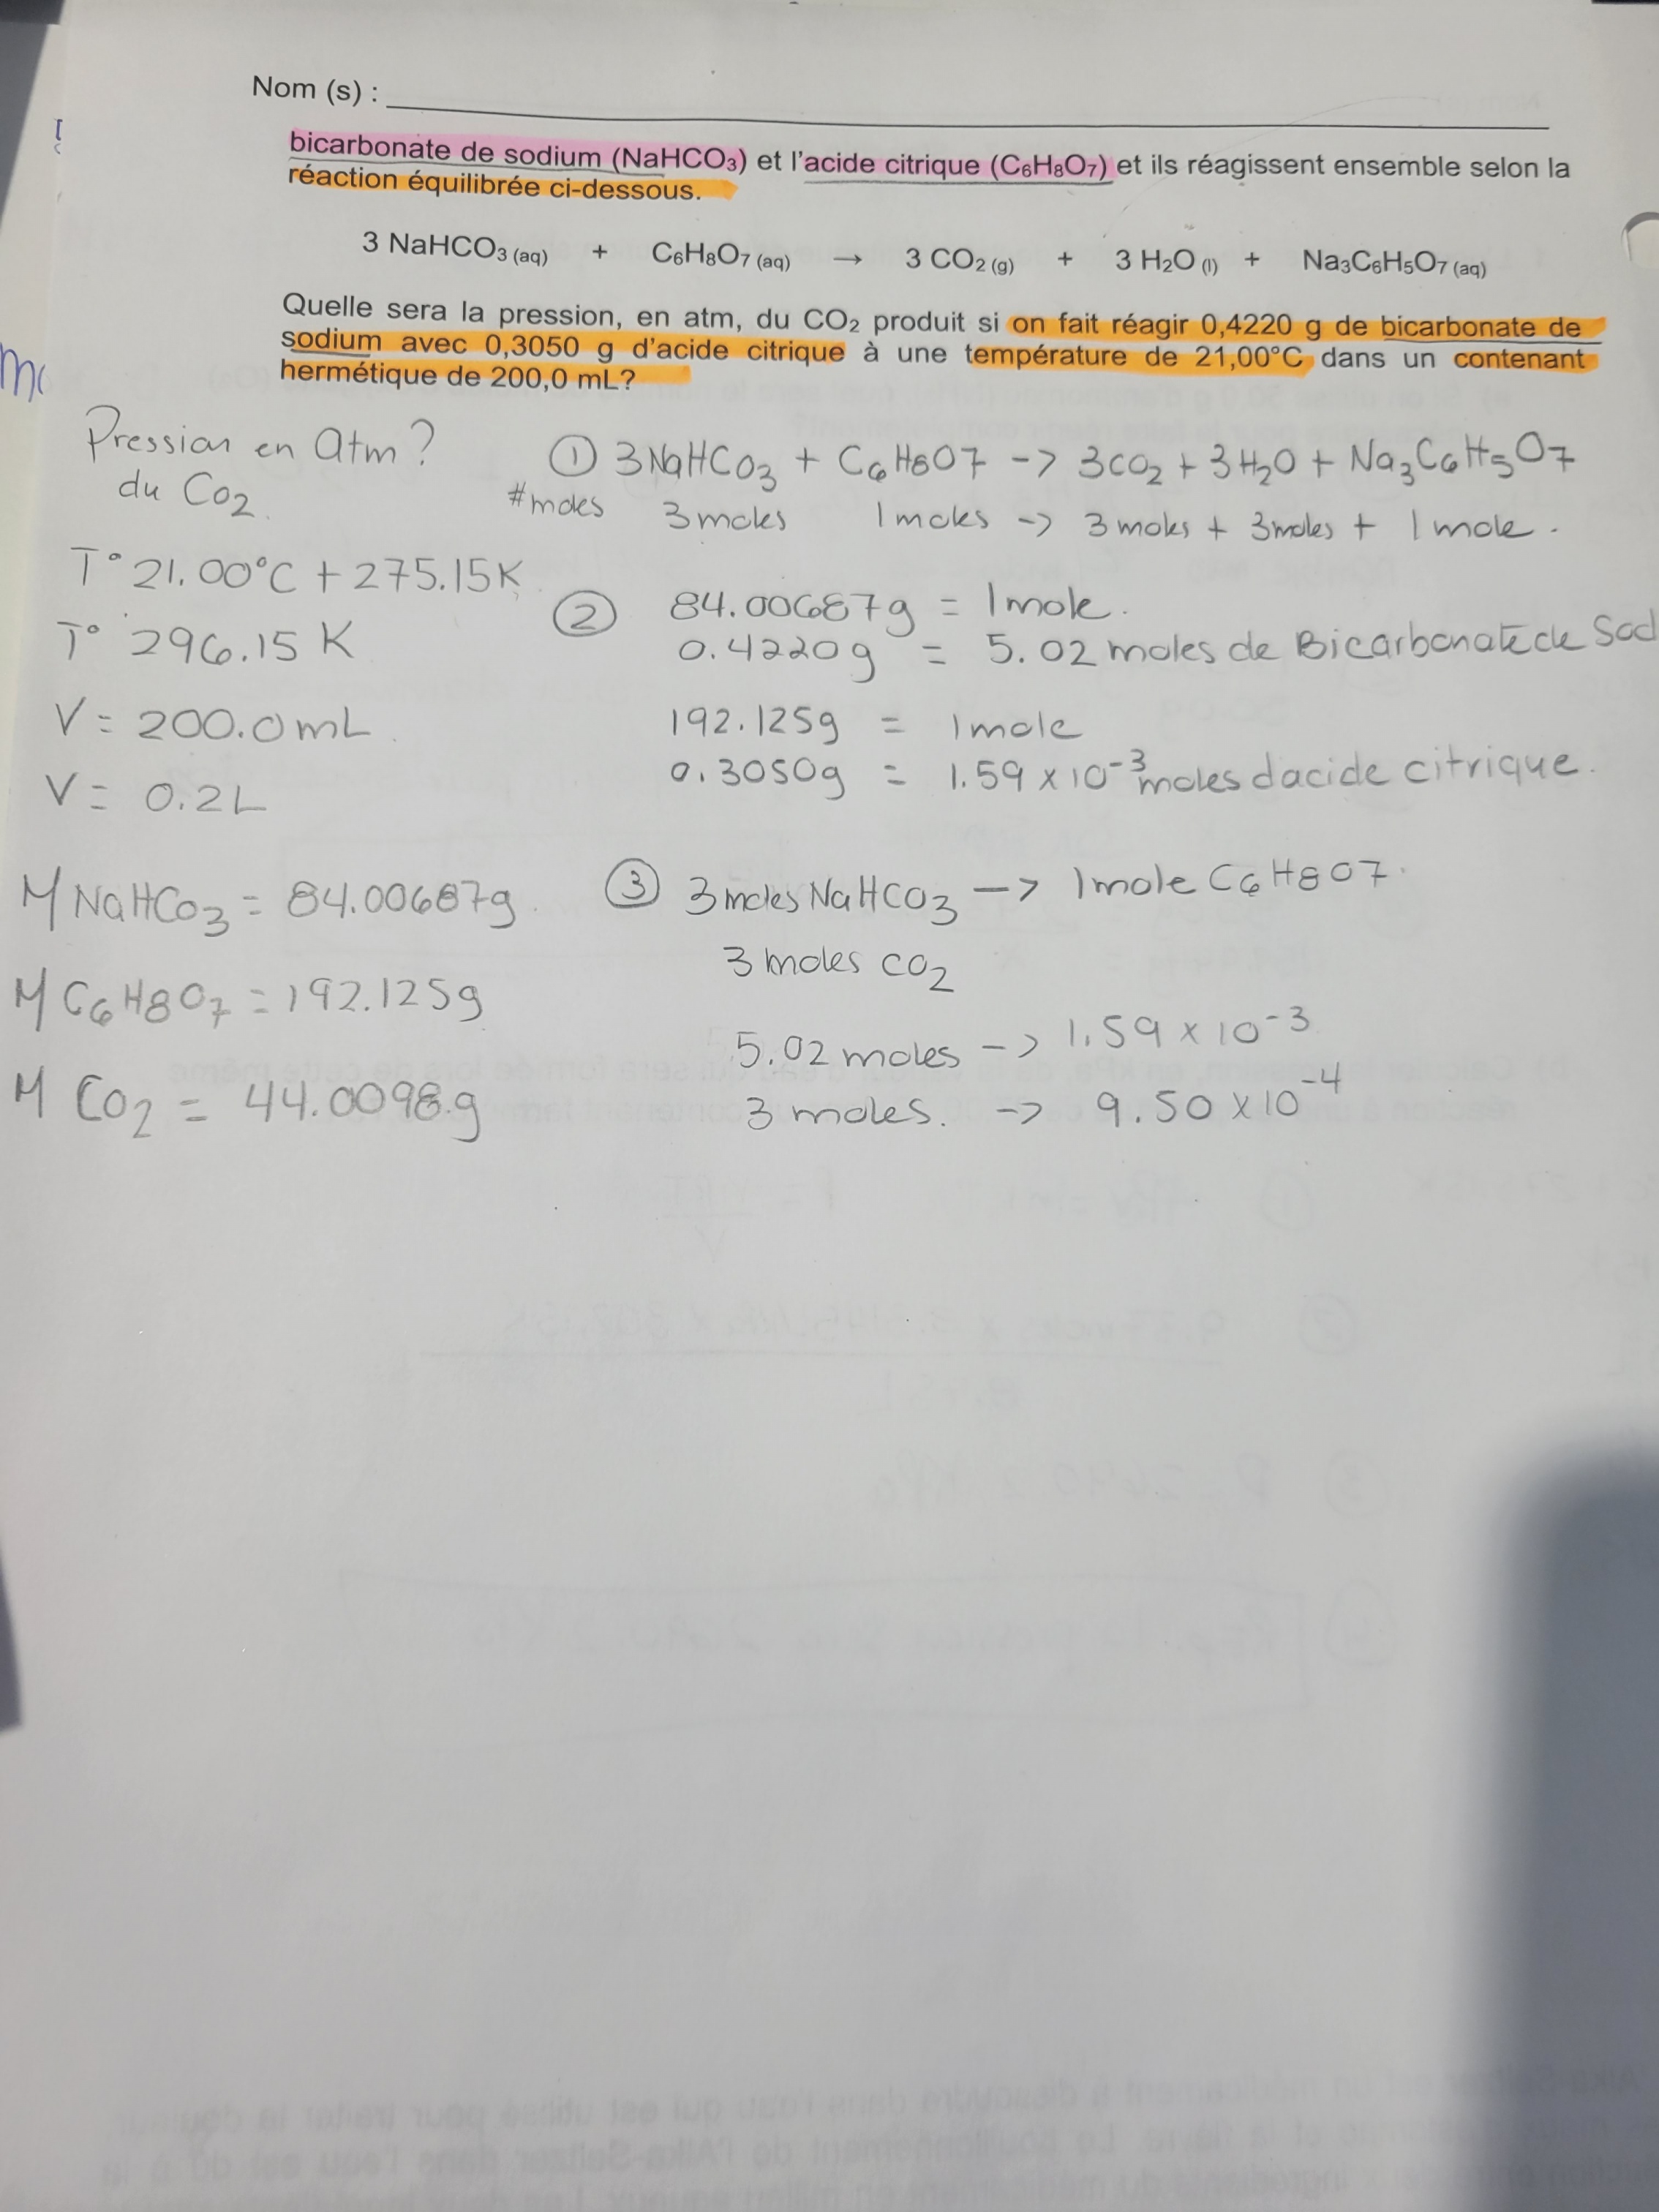 Nom (s) :
bicarbonate de sodium (NaHCO3) et l'acide citrique (C6H8O7) et ils réagissent ensemble selon la
réaction équilibrée ci-dessous.
3 NaHCO3 (aq) + C6H8O7 (aq) → 3 CO2 (g) + 3 H2O (l) + Na3C6H5O7 (aq)
Quelle sera la pression, en atm, du CO2 produit si on fait réagir 0,4220 g de bicarbonate de
sodium avec 0,3050 g d'acide citrique à une température de 21,00°C dans un contenant
hermétique de 200,0 mL?
Pression en Atm?
du CO2.
T° 21.00°C + 275.15K
T° 296.15 K
V = 200.0mL
V = 0.2L
M NaHCO3 = 84.00687g
M C6H8O7 = 192.125g
M CO2 = 44.0098g
① 3NaHCO3 + C6H8O7 -> 3CO2 + 3H2O + Na3C6H5O7
#moles 3moles 1moles -> 3moles + 3moles + 1mole.
② 84.00687g = 1mole.
0.4220g = 5.02 moles de Bicarbonate de Sod
192.125g = 1mole
0.3050g = 1.59 x 10-3 moles dacide citrique.
③ 3moles NaHCO3 -> 1mole C6H8O7.
3 moles CO2
5.02 moles -> 1.59 x 10-3
3 moles. -> 9.50 x 10-4